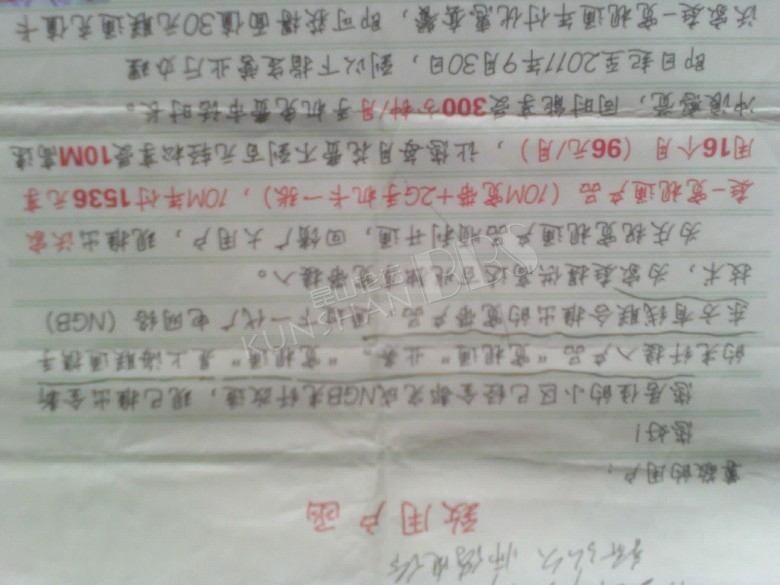 致用户函
尊敬的用户，
您好！
您居住的小区已经全部完成NGB光纤改造，现已推出全新
的光纤接入产品“宽视通”业务。“宽视通”是上海联通携手
东方有线联合推出的宽带产品，通过下一代广电网络（NGB）
技术，为家庭提供高达百兆独享宽带接入。
为庆祝宽视通产品顺利开通，回馈广大用户，现推出沃家
庭—宽视通产品（10M宽带+2G手机卡一张），10M年付1536元享
用16个月（96元/月），让您每月花费不到百元轻松享受10M高速
冲浪感觉，同时能享受300分钟/月手机免费市话时长。
即日起至2011年9月30日，到以下指定营业厅办理
沃家庭—宽视通年付优惠套餐，即可获赠面值30元联通充值卡
昆山论坛
KUNSHAN BBS